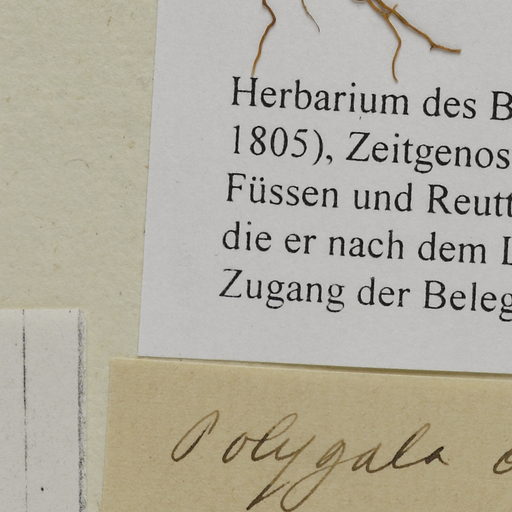 Herbarium des B
1805), Zeitgenos
Füssen und Reutt
die er nach dem L
Zugang der Beleg
Polygala